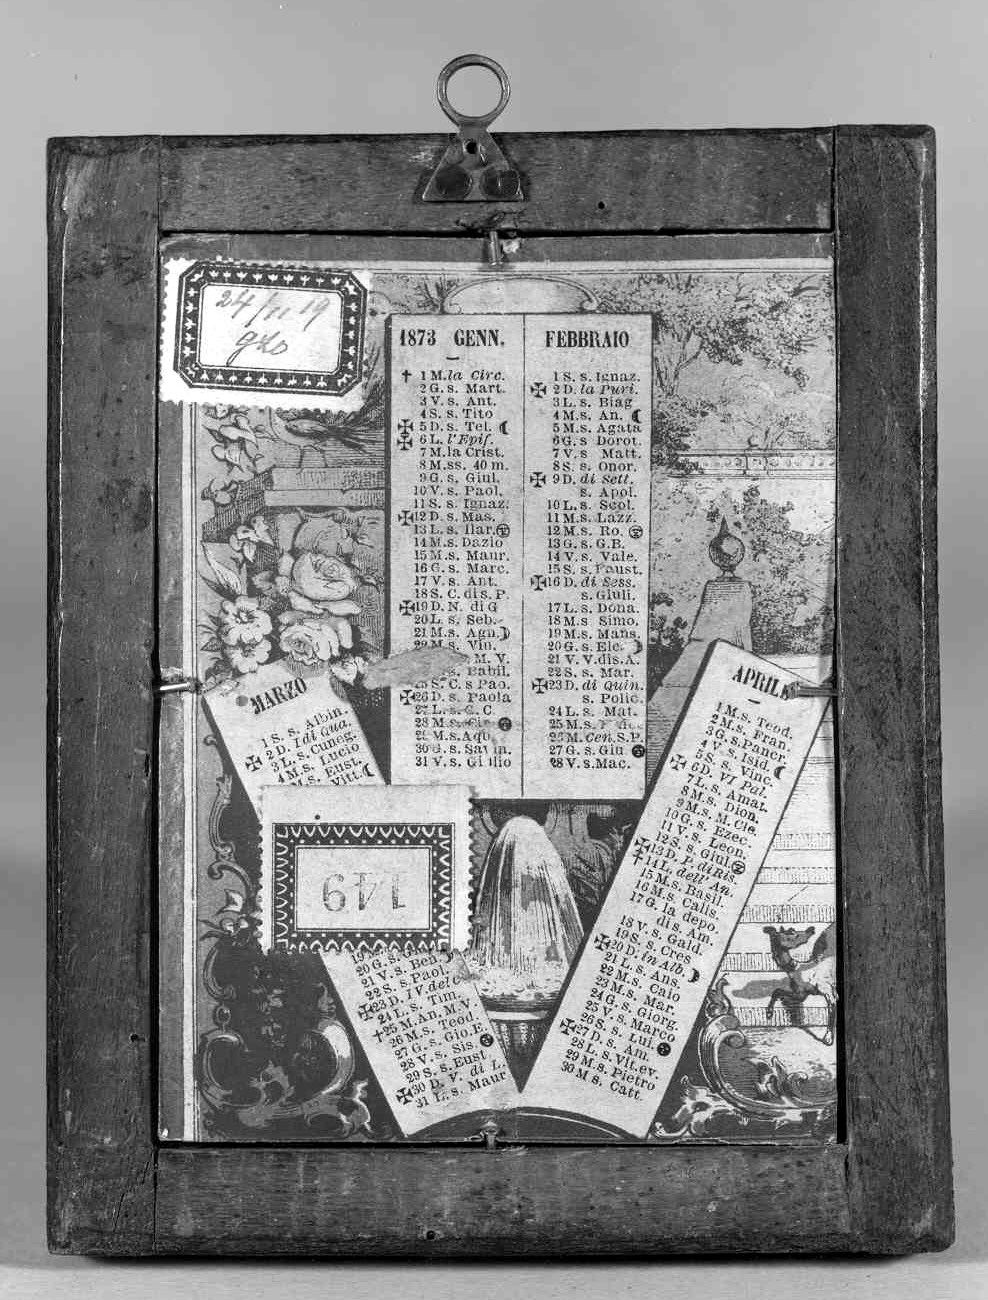 24/11 19
1873 GENN.
† 1 M. la Circ.
2 G. s. Mart.
3 V. s. Ant.
4 S. s. Tito
✠ 5 D. s. Tel. ☾
✠ 6 L. l'Epif.
7 M. la Crist.
8 M. ss. 40 m.
9 G. s. Giul.
10 V. s. Paol.
11 S. s. Ignaz.
✠ 12 D. s. Mas.
13 L. s. Ilar.
14 M. s. Dazio
15 M. s. Maur.
16 G. s. Marc.
17 V. s. Ant.
18 S. C. di s. P.
✠ 19 D. N. di G
20 L. s. Seb.
21 M. s. Agn. ☽
22 M. s. Vin.
M. V.
s. Babil.
25 S. C. s Pao.
✠ 26 D. s. Paola
27 L. s. G. C.
28 M. s.
29 M. s. Aqu.
30 G. s. Savin.
31 V. s. Giulio
FEBBRAIO
1 S. s. Ignaz.
✠ 2 D. la Puri.
3 L. s. Biag
4 M. s. An. ☾
5 M. s. Agata
6 G. s Dorot.
7 V. s Matt.
8 S. s. Onor.
✠ 9 D. di Sett.
s. Apol.
10 L. s. Scol.
11 M. s. Lazz.
12 M. s. Ro.
13 G. s. G.B.
14 V. s. Vale.
15 S. s. Faust.
✠ 16 D. di Sess.
s. Giuli.
17 L. s. Dona.
18 M. s Simo.
19 M. s. Mans.
20 G. s. Ele. ☽
21 V. V. di s. A.
22 S. s. Mar.
✠ 23 D. di Quin.
s. Polic.
24 L. s. Mat.
25 M. s.
26 M. Cen. S.P.
27 G. s. Giu.
28 V. s. Mac.
MARZO
1 S. s. Albin.
✠ 2 D. I di Qua.
3 L. s. Cuneg.
4 M. s. Lucio
M. s. Eust.
s. Vitt. ☾
1149
19 M.
20 G. s.
21 V. s. Ben. ☽
22 S. s. Paol.
✠ 23 D. IV. del C
24 L. s. Tim.
† 25 M. An. M. V.
26 M. s. Teod.
27 G. s. Gio. E.
28 V. s. Sis.
29 S. s. Eust
✠ 30 D. V. di L.
31 L. s. Maur
APRILE
1 M. s. Teod.
2 M. s. Fran.
3 G. s. Pancr.
4 V. s. Isid. ☾
5 S. s. Vinc.
✠ 6 D. VI Pal.
7 L. s. Amat.
8 M. s. Dion.
9 M. s. M. Cle.
10 G. s. Ezec.
11 V. s. Leon.
12 S. s. Giul.
✠ 13 D. P. di Ris.
† 14 L. dell' An.
15 M. s. Basil.
16 M. s. Calis.
17 G. la depo.
di s. Am.
18 V. s. Gald
19 S. s. Cres
✠ 20 D. in Alb. ☽
21 L. s. Ans.
22 M. s. Caio
23 M. s. Mar.
24 G. s. Giorg.
25 V. s. Marco
26 S. s. Lui.
✠ 27 D. s. Am.
28 L. s. Vit. ev.
29 M. s. Pietro
30 M s. Catt.